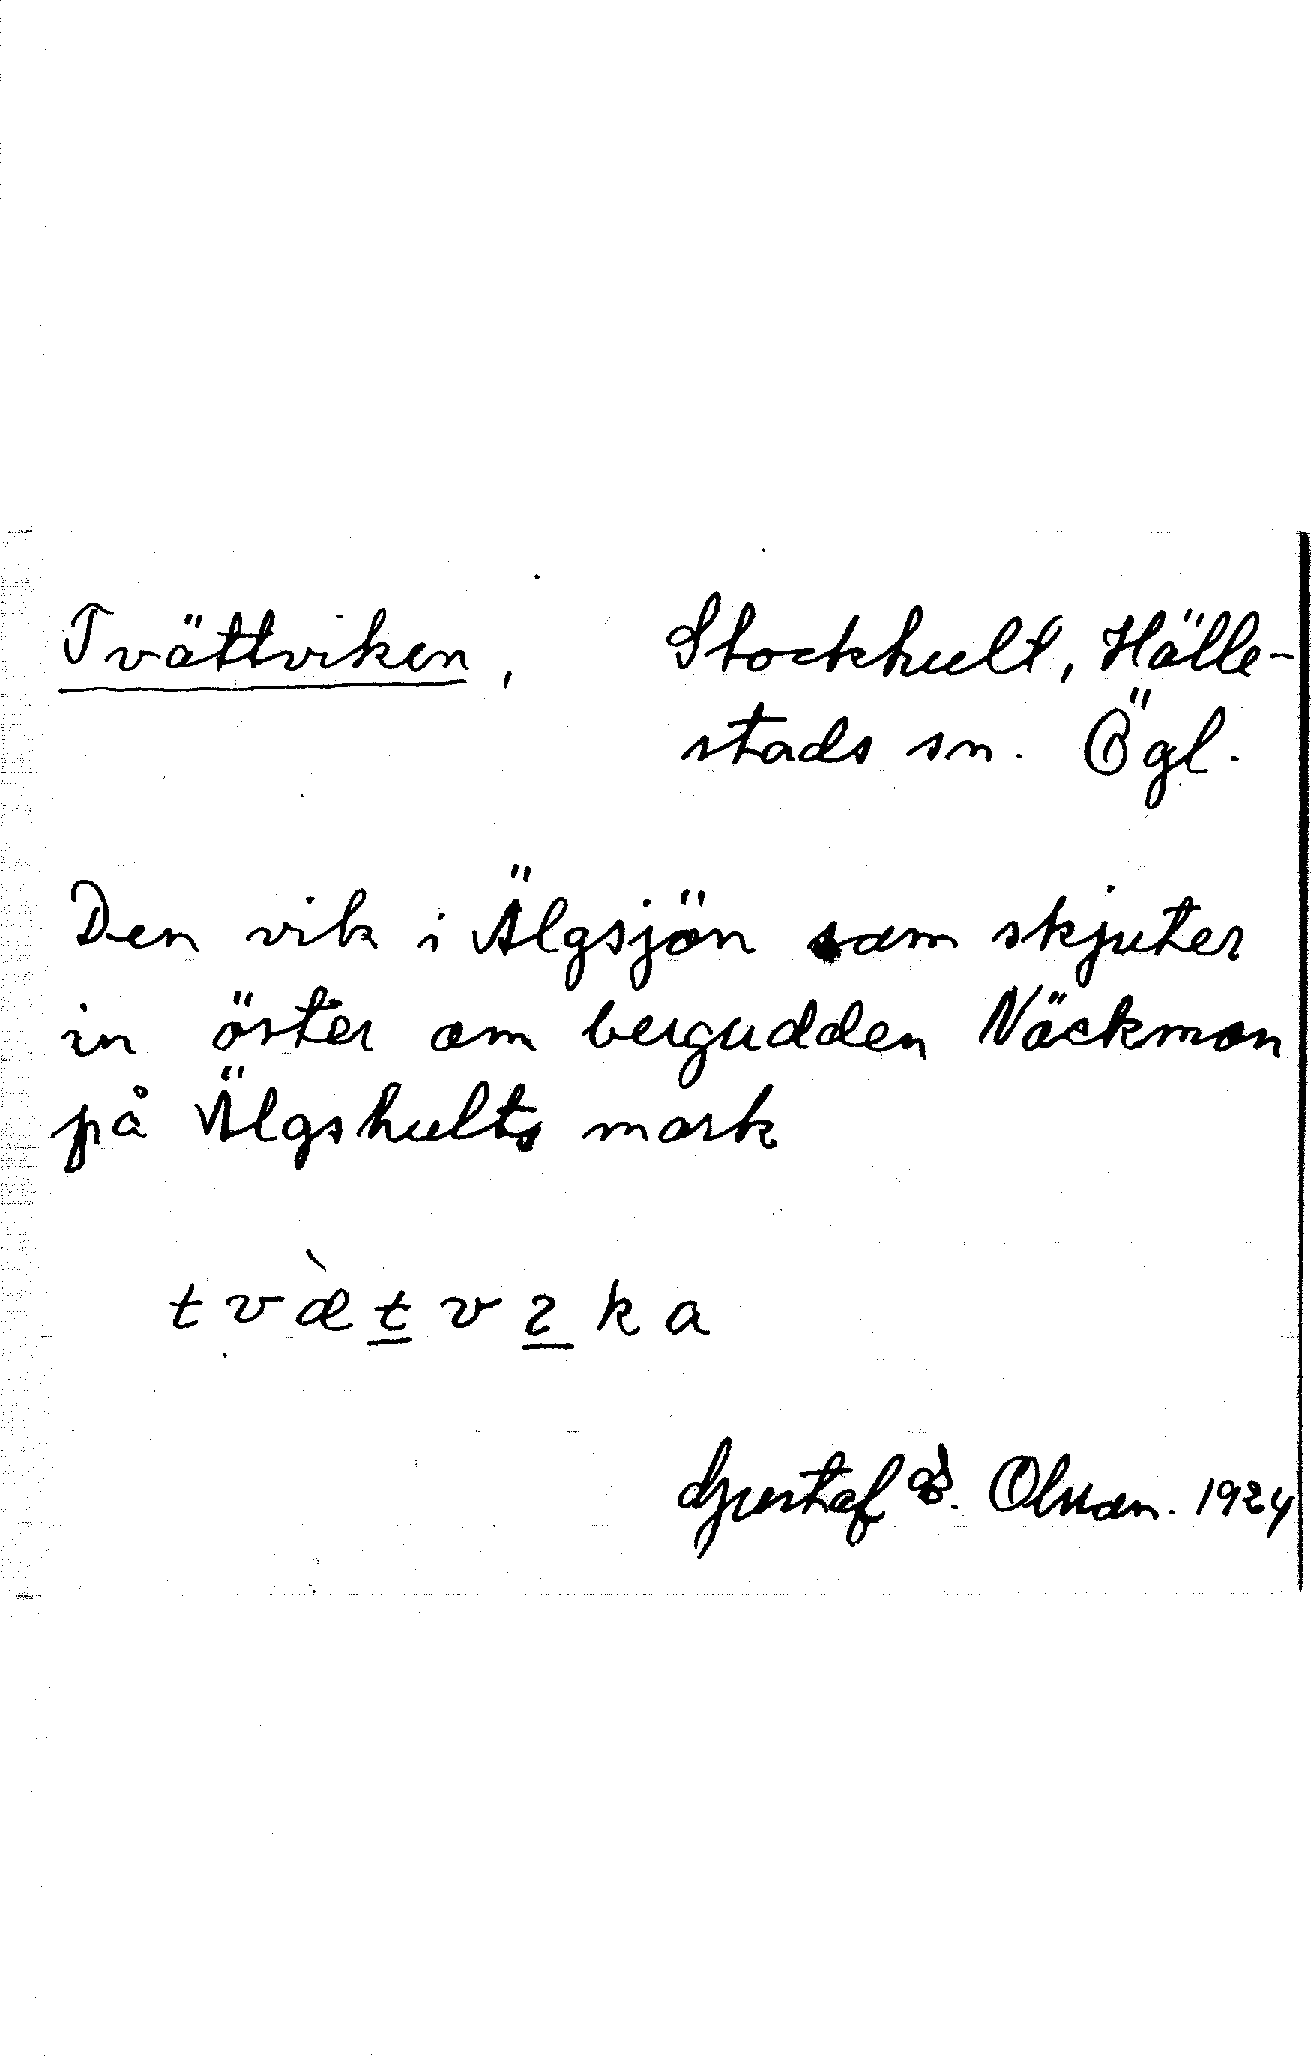 Tvättviken, Stockhult, Hälle-
stads sn. Ögl.
Den vik i Älgsjön som skjuter
in öster om bergudden Näckmon
på Älgshults mark
tvæ̀t̲vɿ̲ka
Gustaf Olsson. 1924